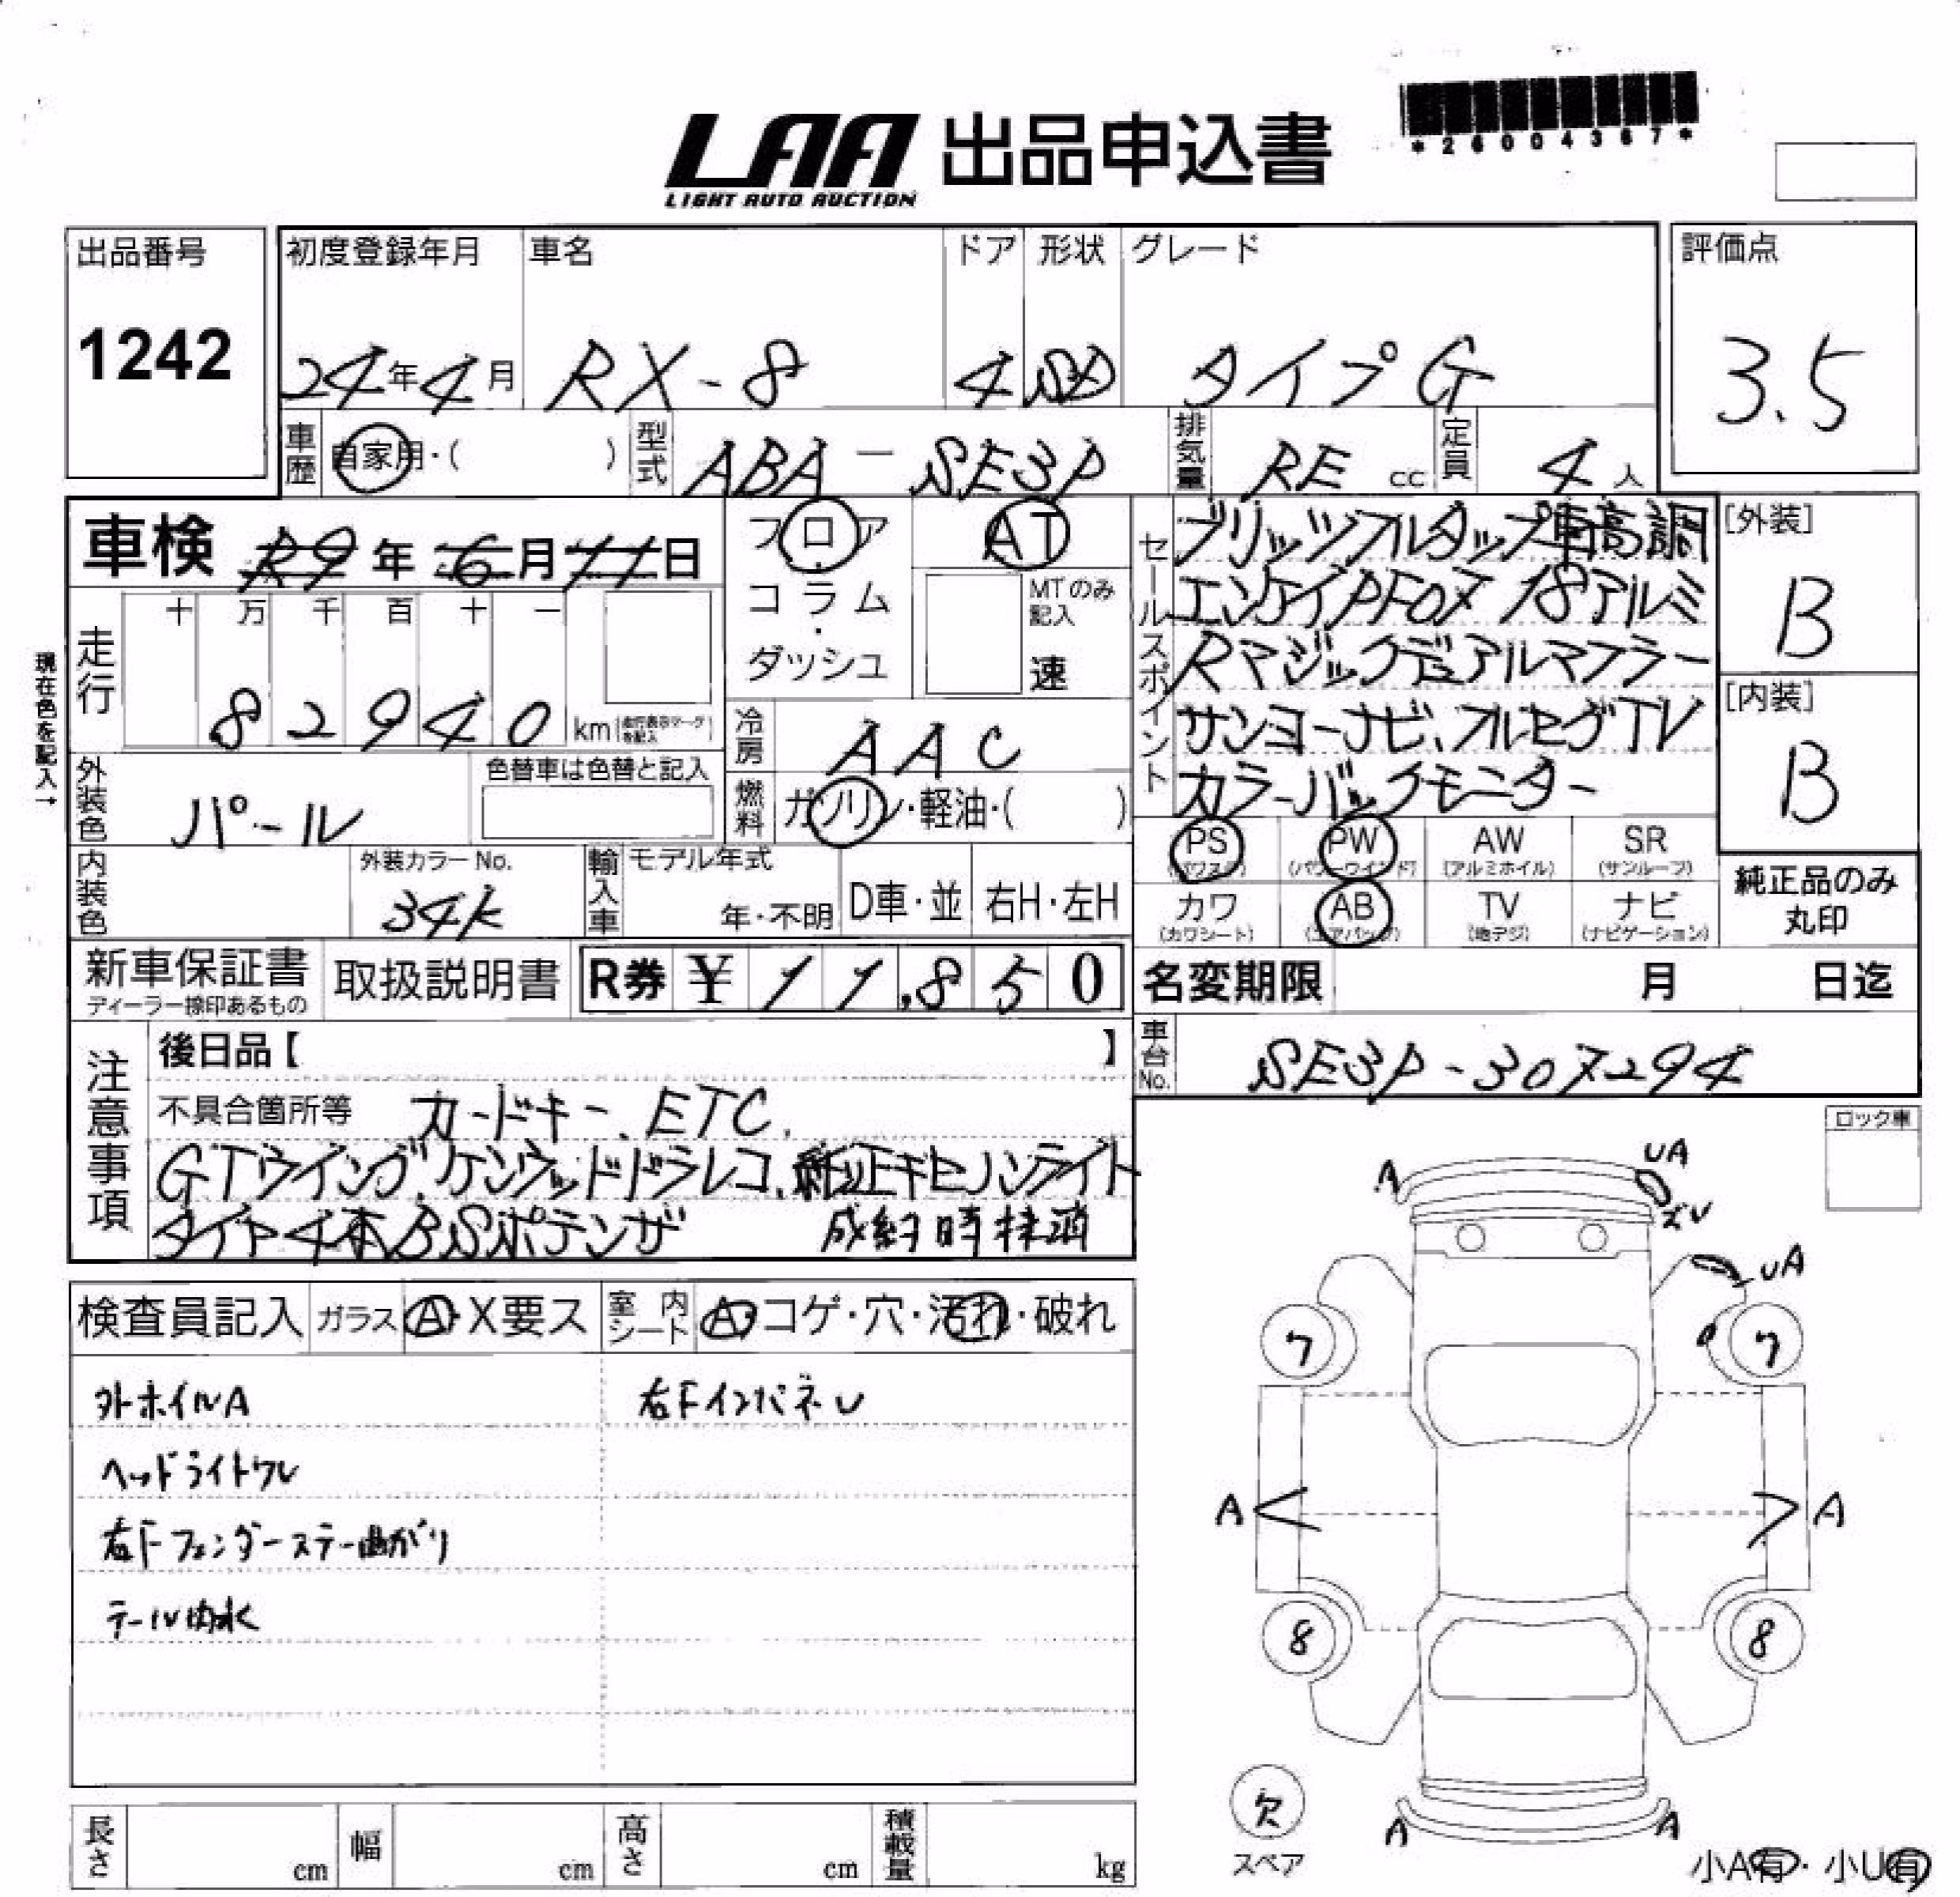 LAA 出品申込書
LIGHT AUTO AUCTION
*26004367*
出品番号
1242
初度登録年月 車名 ドア 形状 グレード
24年4月 RX-8 4 SD タイプG
評価点
3.5
車歴 自家用・( ) 型式 ABA-SE3P 排気量 RE cc 定員 4人
車検 R9年6月11日
フロア
・
コラム
・
ダッシュ
AT
MTのみ記入
速
セールスポイント
ブリッツフルタップ車高調
エンケイPF07 18アルミ
Rマジックデュアルマフラー
サンヨーナビ、フルセグTV
カラーバックモニター
[外装]
B
[内装]
B
現在色を記入→
走行 十 万 千 百 十 一
82940 km 走行表示マークを記入
冷房 AAC
燃料 ガソリン・軽油・( )
外装色 パール 色替車は色替と記入
内装色 外装カラーNo. 34K
輸入車 モデル年式 年・不明 D車・並 右H・左H
PS (パワステ) PW (パワーウインド) AW (アルミホイル) SR (サンルーフ)
カワ (カワシート) AB (エアバッグ) TV (地デジ) ナビ (ナビゲーション)
純正品のみ
丸印
新車保証書 ディーラー捺印あるもの 取扱説明書 R券 ¥11,850
名変期限 月 日迄
車台No. SE3P-307294
注意事項
後日品【 】
不具合箇所等 カードキー、ETC、
GTウイング、ケンウッドドラレコ、純正キセノンライト
タイヤ4本BSポテンザ 成約時抹消
ロック車
検査員記入 ガラス A・X要ス 室内シート A・コゲ・穴・汚れ・破れ
外ホイルA 右Fインパネレ
ヘッドライトワレ
右Fフェンダーステー曲がり
テール内水
A UA
ズレ
UA
7 7
A A
8 8
欠
スペア
A A
小A有・小U有
長さ cm 幅 cm 高さ cm 積載量 kg